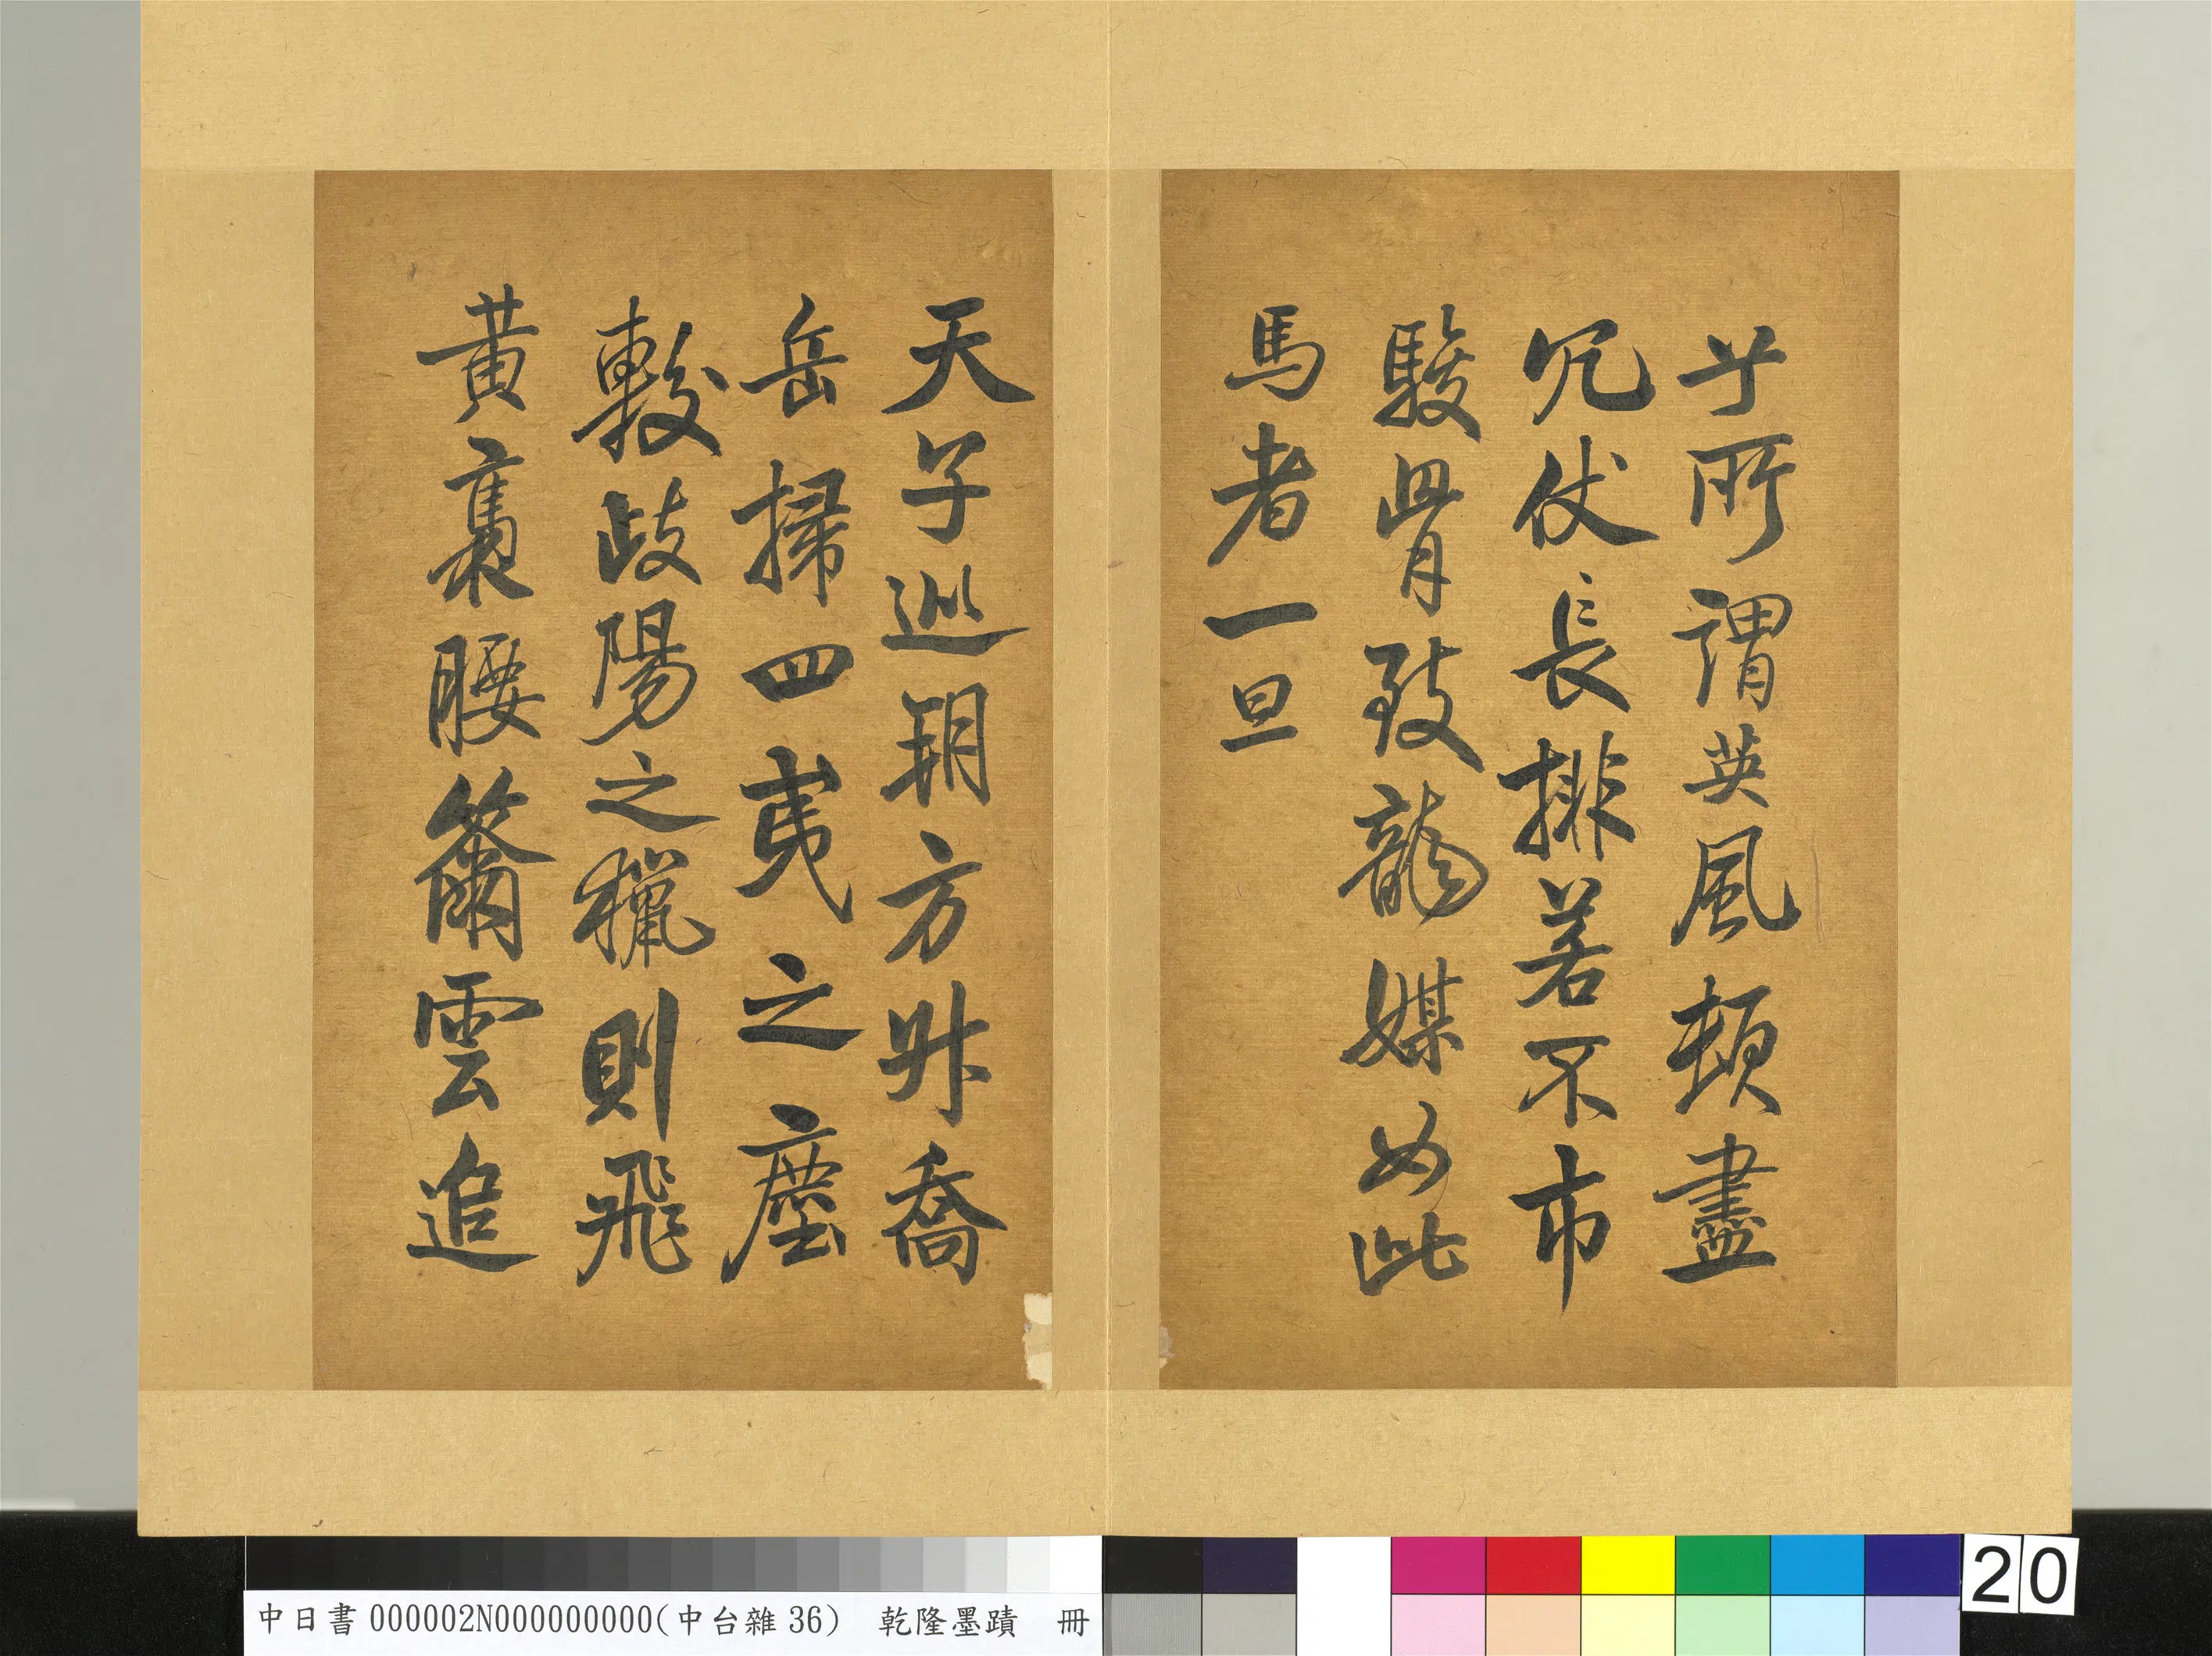 所謂英風頓盡
冗仗長排若不市
駿骨致龍媒如此
馬者一旦
天子巡朔方升喬
岳掃四夷之塵
較歧陽之獵則飛
黃褭腰籋雲追
20
中日書000002N000000000(中台雜36) 乾隆墨蹟 冊